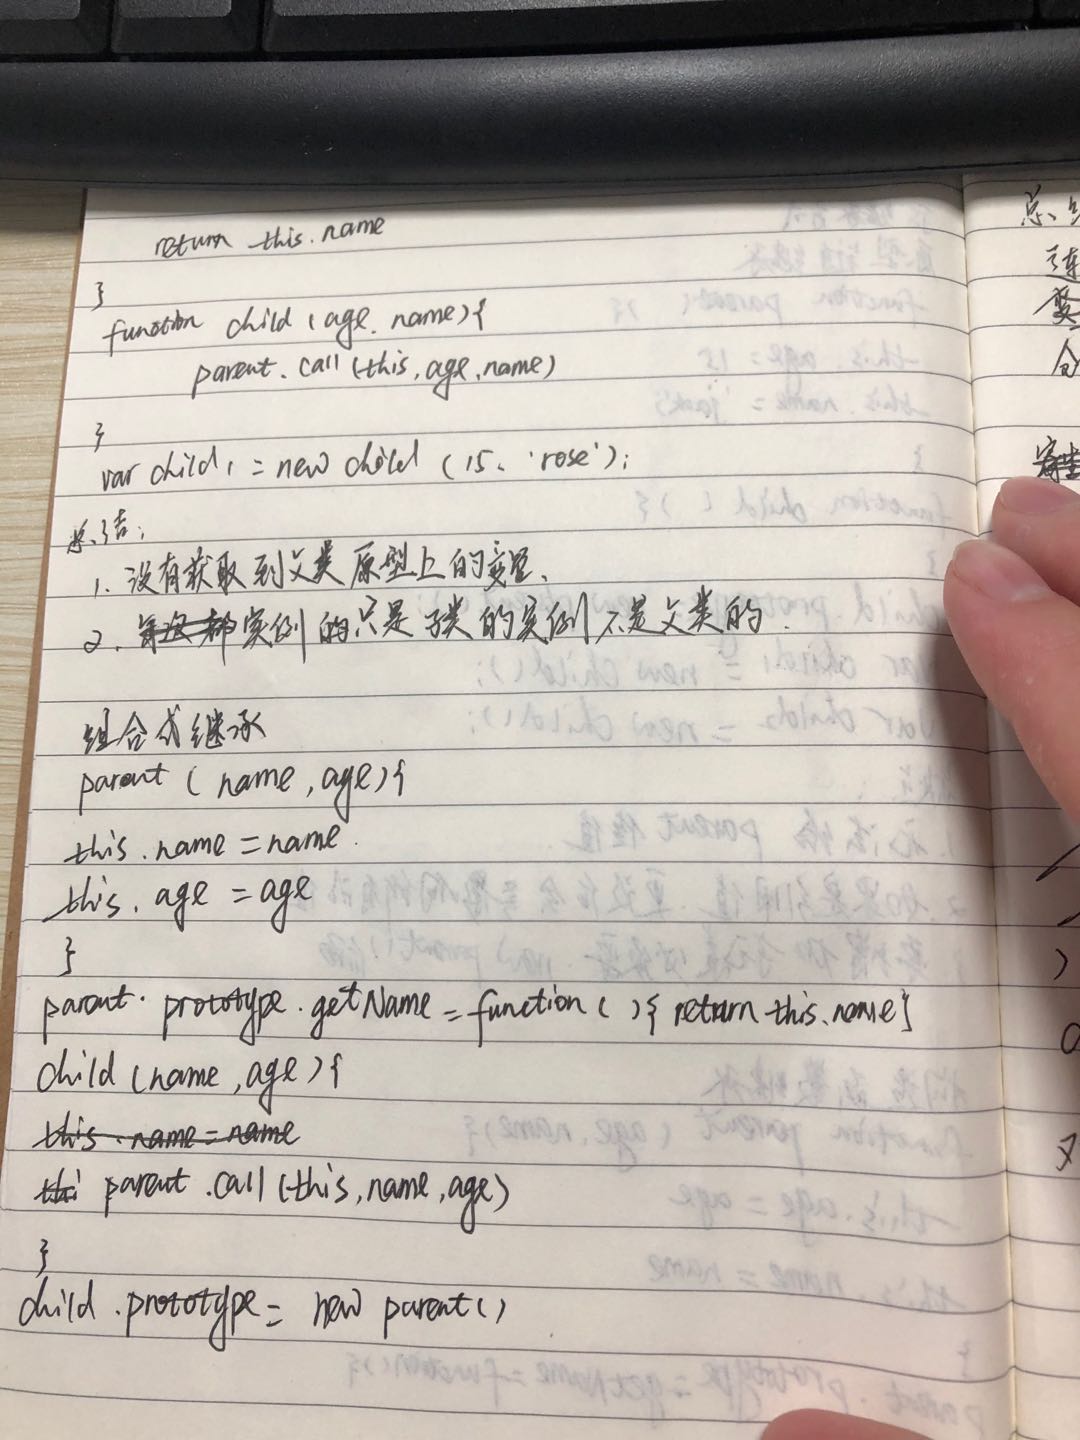 return this.name
}
function child (age, name){
parent.call(this, age, name)
}
var child1 = new child (15, 'rose');
总结:
1. 没有获取到父类原型上的变量.
2. 实例的只是子类的实例不是父类的.
组合式继承
parent ( name, age){
this.name = name.
this.age = age
}
parent.prototype.getName = function ( ){ return this.name}
child (name, age){
this.name = name
thi parent.call(this, name, age)
}
child.prototype = new parent()